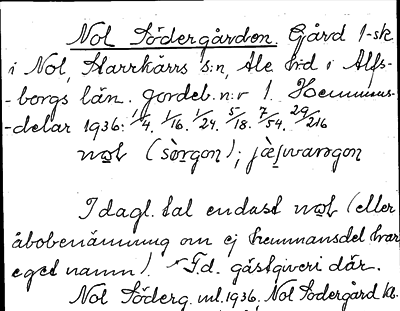 Nol Södergården. Gård 1-sk
i Nol, Starrkärrs s:n, Ale h:d i Älfs-
-borgs län. Jordeb. n:r 1. Hemmans-
-delar 1936: 1/4, 1/16, 1/24, 5/18, 7/54, 29/216
I dagl. tal endast (eller
åbobenämning om ej hemmansdel har
eget namn). F.d. gästgiveri där.
Nol Söderg. ml. 1936, Nol Södergård